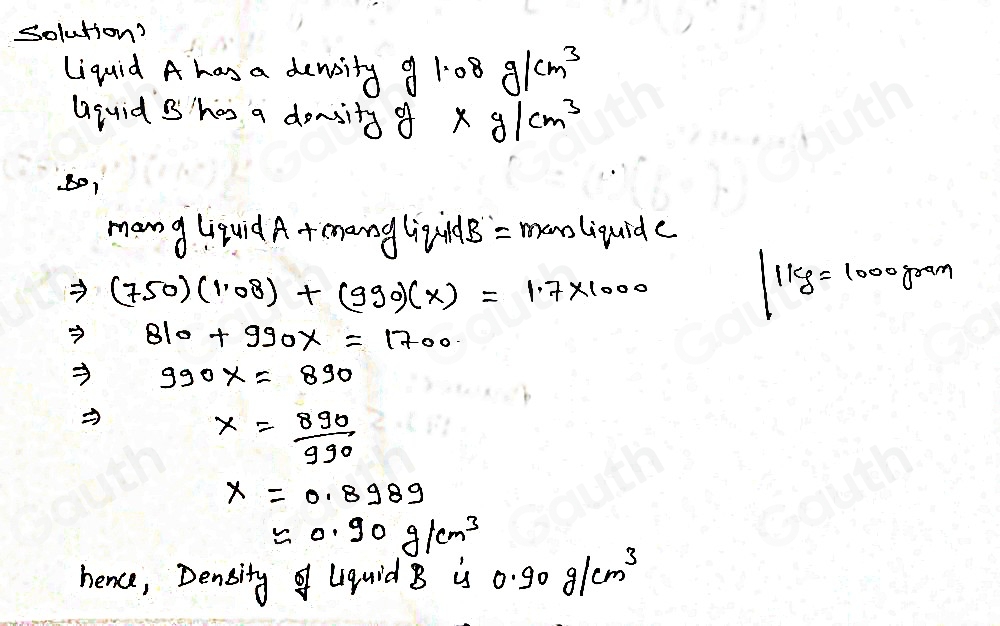 Solution:
Liquid A has a density of 1.08 g/cm³
Liquid B has a density of x g/cm³
So,
mass of liquid A + mass of liquid B = mass liquid C
⇒ (750)(1.08) + (990)(x) = 1.7×1000 | 1 kg = 1000 gram
⇒ 810 + 990x = 1700
⇒ 990x = 890
⇒ x = 890/990
x = 0.8989
≈ 0.90 g/cm³
hence, Density of Liquid B is 0.90 g/cm³
Gauth